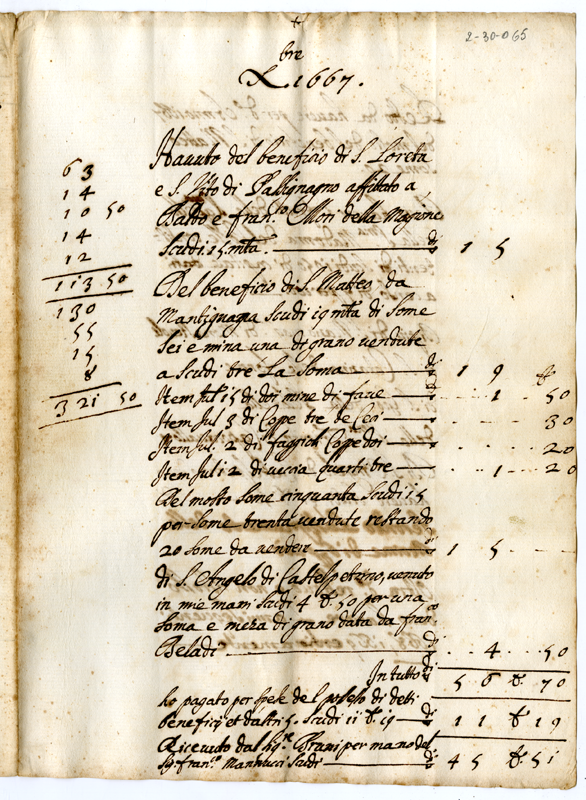 2-30-065
+
bre
X. 1667.
Hauuto del beneficio di S. Loreta
e S. Vito di Passignagno affittato a
Baldo e fran.co Mori della Magione
scudi 15 mta. — di 15
Del beneficio di S. Matteo da
Mantignana Scudi 19 mta di Some
sei e mina una di grano vendute
a Scudi tre La Soma — di 19 b.
Item Jul 15 di doi mine di faue — 1 50
Item Jul 3 di Coppe tre de Ceci — 30
Item Jul. 2 di faggioli Coppe doi — 20
Item Juli 2 di veccia quarti tre — 1 20
Del mosto Some cinquanta Scudi 15
per some trenta vendute restando
20 some da vendere — di 15
di S. Angelo di Castelpetrino, venuto
in mie mani Scudi 4 b. 50 per una
Soma e meza di grano data da fran.co
Beladi — di 4 50
In tutto di 56 b. 70
ho pagato per spese del possesso di detti
beneficij et daltri 5. Scudi 11 b. 19 — di 11 b 19
Riceuuto dal Sig.re per mano del
Sig. fran.co Mannucci Scudi — di 45 b. 51
63
14
10 50
14
12
113 50
130
55
15
8
321 50